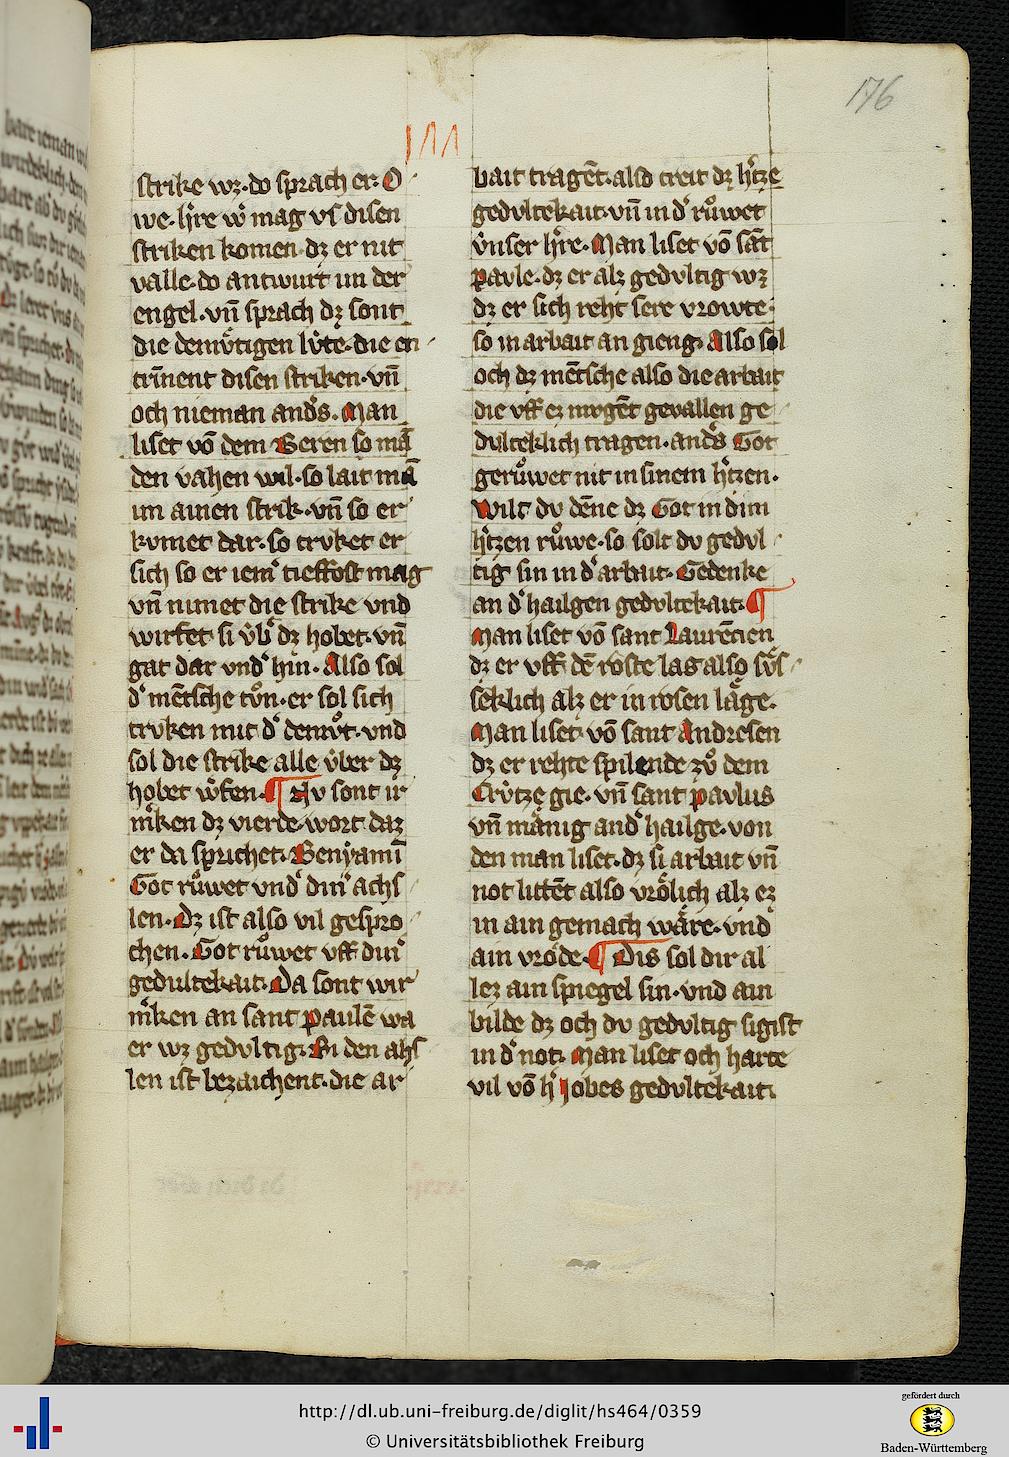 176
strike wz. do sprach er. O
we. hͬre wͥ mag vs disen
striken komen dz er nit
valle. do antwurt im der
engel. vn̄ sprach dz sont
die demvͤtigen lv̍te. die en
trīnent disen striken. vn̄
och nieman andˢs. Man
liset vō dem Beren so mā
den vahen wil. so lait mā
im ainen strik. vn̄ so er
kvmet dar. so trvket er
sich so er iemˢ tieffost mag
vn̄ nimet die strike vnd
wirfet si v̍bˢ dz hobet. vn̄
gat dar vndˢ hin. Also sol
dˢ mētsche tvͦn. er sol sich
trvken mit dˢ demvͦt. vnd
sol die strike alle v̍ber dz
hobet wˢfen. ¶ Nv sont ir
mˢken dz vierde. wort daz
er da sprichet. Benyamī
Got rvͦwet vndˢ dinˢ achs
len. Dz ist also vil gespro
chen. Got rvͦwet vff dinˢ
gedultekait. Da sont wir
mˢken an sant Paulē wa
er wz gedvltig. Bi den ahs
len ist bezaichent. die ar
bait tragēt. also treit dz hˢtze
gedvltekait. vn̄ in dˢ rvͦwet
v̍nser hͬre. Man liset vō sāt
Pavle. dz er alz gedvltig wz
dz er sich reht sere vrowte.
so in arbait an gieng. Also sol
och dz mētsche also die arbait
die vff ez mvgēt gevallen ge
dvlteklich tragen. andˢs Got
gervͦwet nit in sinem hˢtzen.
Wilt dv dēne dz Got in dim
hˢtzen rvͦwe. so solt dv gedvl
tig sin in dˢ arbait. Gedenke
an dˢ hailgen gedvltekait. ¶
Man liset vō sant Laurēcien
dz er vff dē roste lag also svͤs
seklich alz er in rosen lͣge.
Man liset. vō sant Andresen
dz er rehte spilende zvͦ dem
Crv̍tze gie. vn̄ sant Pavlus
vn̄ mͣnig andˢ hailge. von
den man liset. dz si arbait vn̄
not littēt also vroͤlich alz ez
in ain gemach wͤre. vndˢ
ain vrode. ¶ Dis sol dir al
lez ain spiegel sin. vnd ain
bilde dz och dv gedvltig sigist
in dˢ not. Man liset och harte
vil vō hˢ Jobes gedvltekait.
http://dl.ub.uni-freiburg.de/diglit/hs464/0359
© Universitätsbibliothek Freiburg
gefördert durch
Baden-Württemberg